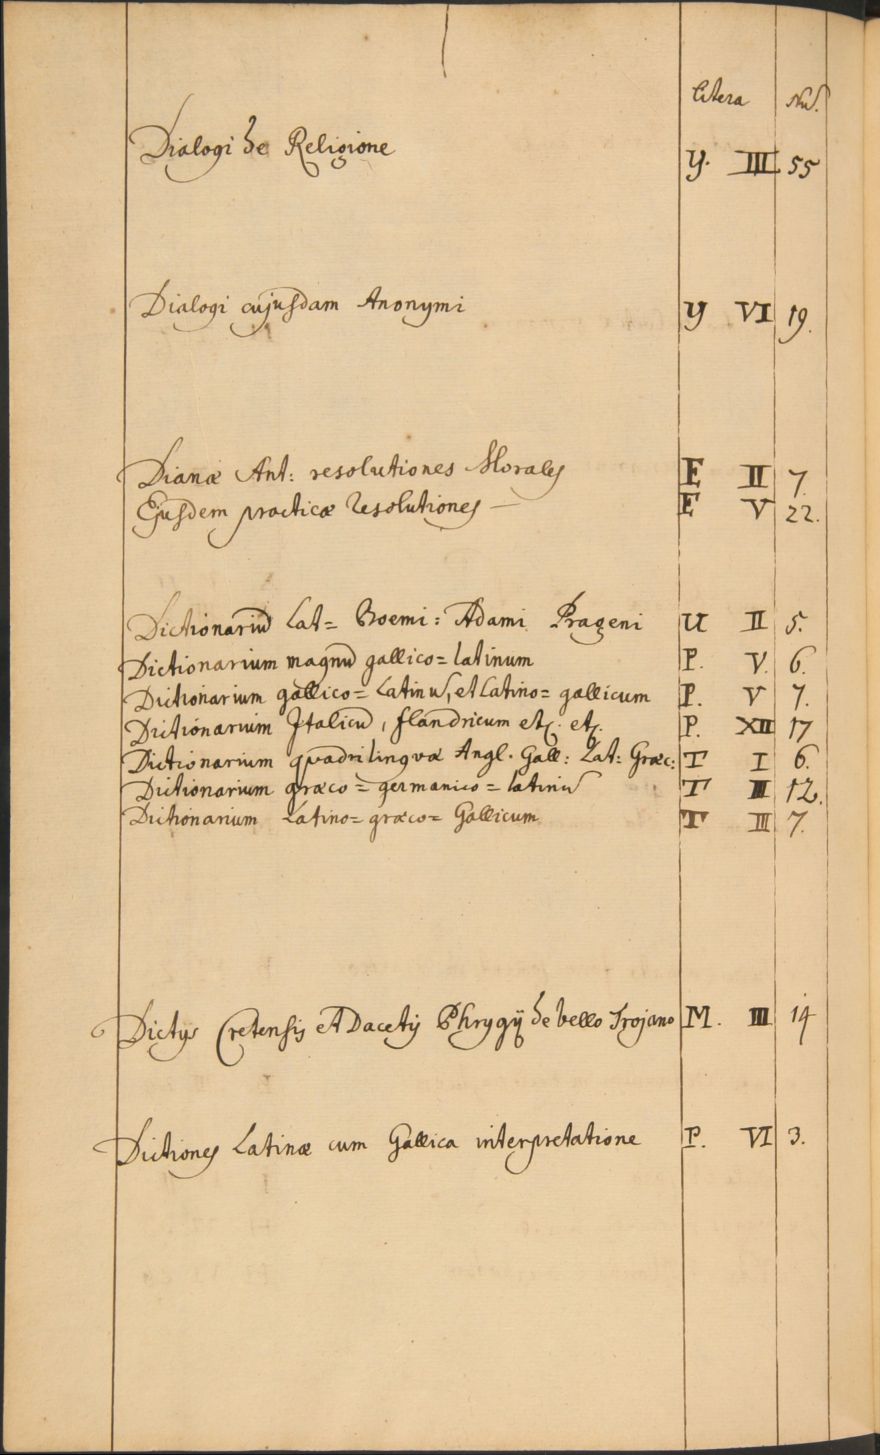 Litera Nu͞.
Dialogi de Religione Y. III 55
Dialogi cujusdam Anonymi Y VI 19.
Dianæ Ant: resolutiones Morales E II 7.
Ejusdem practicæ resolutiones — E V 22.
Dictionariu͞ Lat= Boemi: Adami Prageni U II 5.
Dictionarium magnu͞ gallico=latinum P. V. 6.
Dictionarium gallico=Latinu͞, et Latino=gallicum P. V 7.
Dictionarium Italicu͞, flandricum etc. etc. P. XII 17
Dictionarium quadrilinguæ Angl. Gall: Lat: Græc: T I 6.
Dictionarium græco=germanico=latinu͞ T III 12.
Dictionarium Latino=græco=Gallicum T III 7.
Dictys Cretensis et Dacetij Phrygij de bello Trojano M. III 14
Dictiones Latinæ cum Gallica interpretatione P. VI 3.